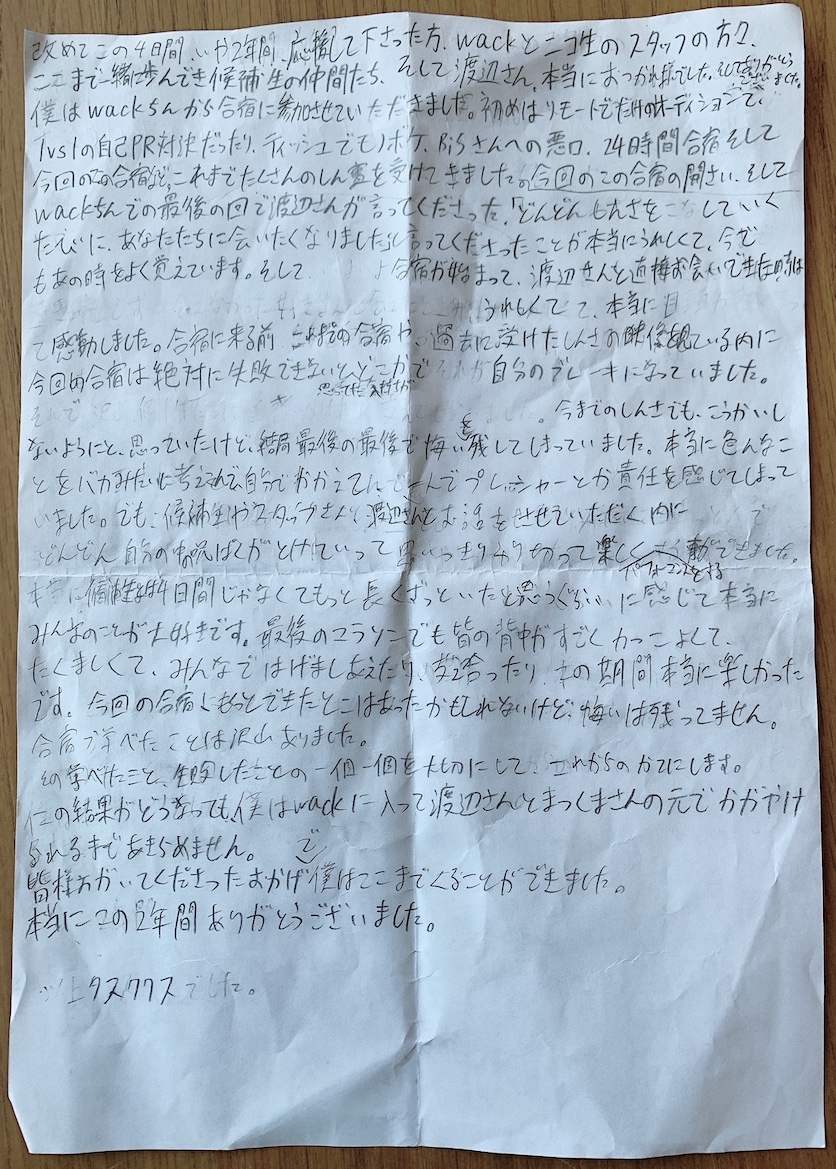 改めてこの4日間、いや2年間、応援して下さった方、wackとニコ生のスタッフの方々、
ここまで一緒に歩んでき候補生の仲間たち、そして渡辺さん、本当におつかれ様でした。そしてありがとうございました。
僕はwackちんから合宿に参加させていただきました。初めはリモートでだけのオーディションで、
1vs1の自己PR対決だったり、ティッシュでもノボケ、BiSさんへの悪口、24時間合宿そして
今回のこの合宿など、これまでたくさんのしん査を受けてきました。今回のこの合宿の開さい、そして
wackちんでの最後の回で渡辺さんが言ってくださった、「どんどんしんさをこなしていく
たびに、あなたたちに会いたくなりました」と言ってくださったことが本当にうれしくて、今で
もあの時をよく覚えています。そして 合宿が始まって、渡辺さんと直接お会いできた時は
うれしくて 、本当に
て感動しました。合宿に来る前 これまでの合宿や、過去に受けたしんさの映像を見ている内に
今回の合宿は絶対に失敗できないと、どこかで それが自分のブレーキになっていました。
思ってた
今までのしんさでも、こうかいし
ないようにと、思っていたけど、結局最後の最後で悔いを残してしまっていました。本当に色んなこ
とをバカみたいに考えこんで、自分でかかえてんで一人でプレッシャーとか責任を感じてしまって
いました。でも、候補生やスタッフさんと渡辺さんとお話をさせていただく内に
どんどん自分の中の呪ばくがとけていって思いっきりやり切って楽しく できました。
パフォーマンスをする
本当に候補生とは4日間じゃなくてもっと長くずっといたと思うぐらいに感じて本当に
みんなのことが大好きです。最後のマラソンでも皆の背中がすごくカッコよくて、
たくましくて、みんなではげましあえたり、支え合ったり、この期間本当に楽しかった
です。今回の合宿、もっとできたとこはあったかもしれないけど、悔いは残ってません。
合宿で学べたことは沢山ありました。
その学べたこと、失敗したことの一個一個を大切にして、これからのかてにします。
この結果がどうなっても、僕はwackに入って渡辺さんとまつくまさんの元でかがやけ
られるまであきらめません。
皆様方がいてくださったおかげで僕はここまでくることができました。
本当にこの2年間ありがとうございました。
以上タスククスでした。